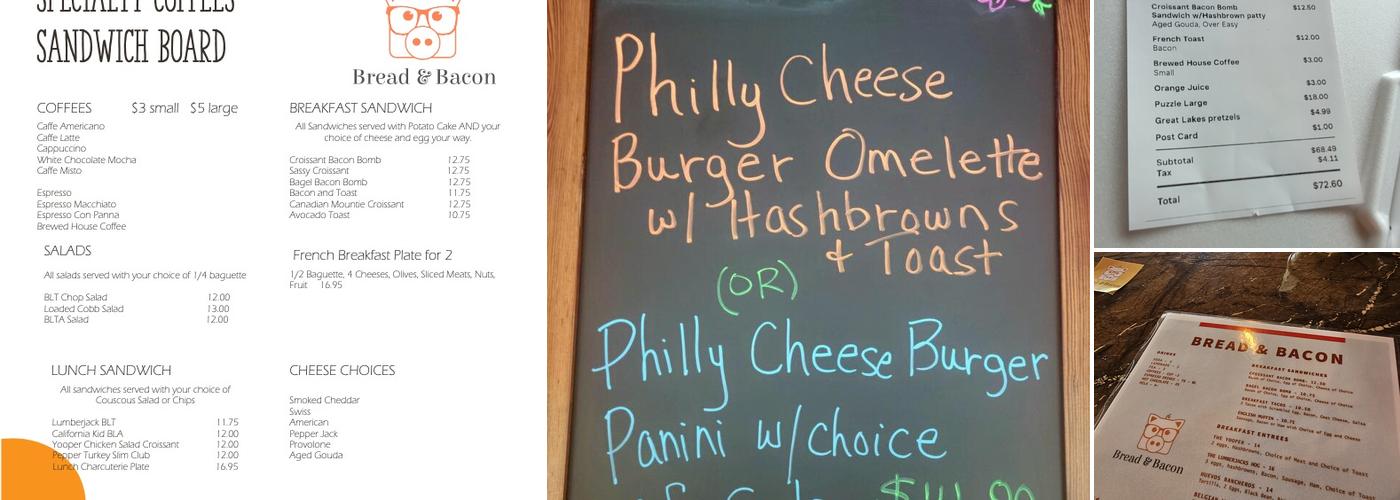 SPECIALTY COFFEES
SANDWICH BOARD
Bread & Bacon
COFFEES $3 small $5 large
Caffe Americano
Caffe Latte
Cappuccino
White Chocolate Mocha
Caffe Misto
Espresso
Espresso Macchiato
Espresso Con Panna
Brewed House Coffee
SALADS
All salads served with your choice of 1/4 baguette
BLT Chop Salad 12.00
Loaded Cobb Salad 13.00
BLTA Salad 12.00
LUNCH SANDWICH
All sandwiches served with your choice of
Couscous Salad or Chips
Lumberjack BLT 11.75
California Kid BLA 12.00
Yooper Chicken Salad Croissant 12.00
Pepper Turkey Slim Club 12.00
Lunch Charcuterie Plate 16.95
BREAKFAST SANDWICH
All Sandwiches served with Potato Cake AND your
choice of cheese and egg your way.
Croissant Bacon Bomb 12.75
Sassy Croissant 12.75
Bagel Bacon Bomb 12.75
Bacon and Toast 11.75
Canadian Mountie Croissant 12.75
Avocado Toast 10.75
French Breakfast Plate for 2
1/2 Baguette, 4 Cheeses, Olives, Sliced Meats, Nuts,
Fruit 16.95
CHEESE CHOICES
Smoked Cheddar
Swiss
American
Pepper Jack
Provolone
Aged Gouda
Philly Cheese
Burger Omelette
w/ Hashbrowns
& Toast
(OR)
Philly Cheese Burger
Panini w/choice
Croissant Bacon Bomb $12.50
Sandwich w/Hashbrown patty
Aged Gouda, Over Easy
French Toast $12.00
Bacon
Brewed House Coffee $3.00
Small
Orange Juice $3.00
Puzzle Large $18.00
Great Lakes pretzels $4.99
Post Card $1.00
Subtotal $68.49
Tax $4.11
Total $72.60
BREAD & BACON
DRINKS
BREAKFAST SANDWICHES
CROISSANT BACON BOMB- 12.50
Bacon of Choice, Egg of Choice, Cheese of Choice
BAGEL BACON BOMB - 10.75
Bacon of Choice, Egg of Choice, Cheese of Choice
BREAKFAST TACOS - 10.50
ENGLISH MUFFIN - 10.75
Sausage, Bacon or Ham with Choice of Egg and Cheese
BREAKFAST ENTREES
THE YOOPER - 14
2 eggs, Hashbrowns, Choice of Meat and Choice of Toast
THE LUMBERJACKS HOG - 16
3 eggs, hashbrowns, Bacon, Sausage, Ham, Choice of Toast
HUEVOS RANCHEROS - 14
Bread & Bacon